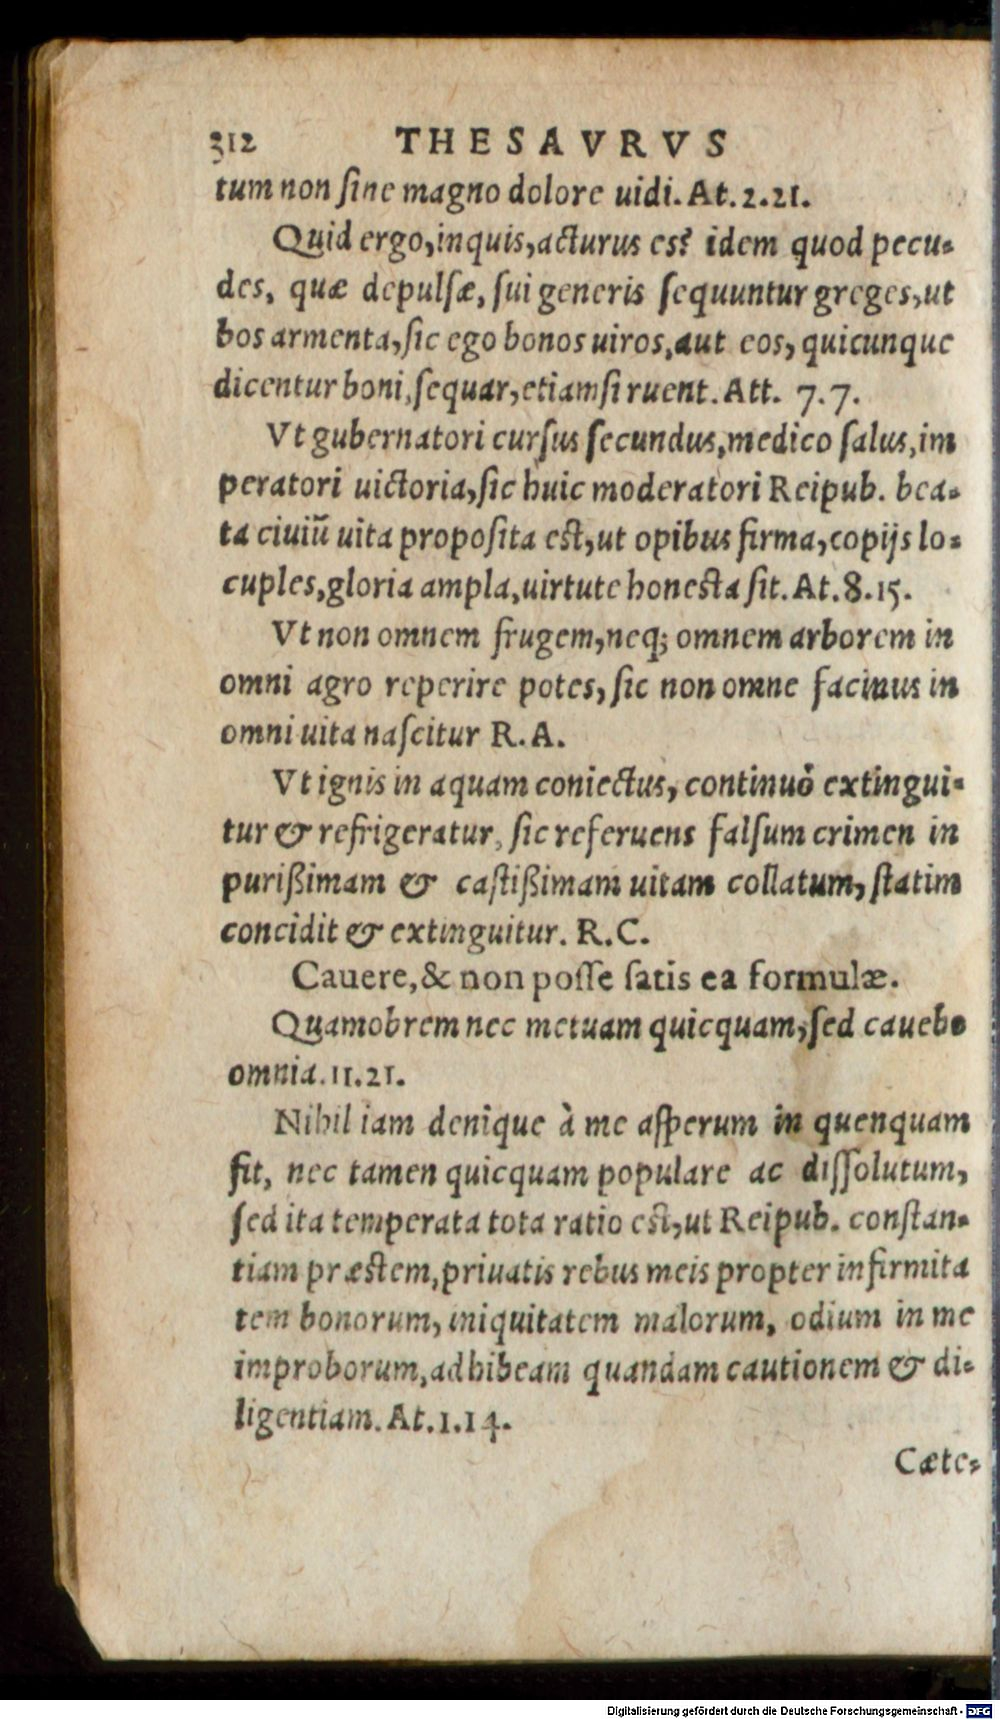 312 THESAVRVS
tum non ſine magno dolore uidi. At. 2.21.
Quid ergo, inquis, acturus es? idem quod pecu-
des, quæ depulſæ, ſui generis ſequuntur greges, ut
bos armenta, ſic ego bonos uiros, aut eos, quicunque
dicentur boni, ſequar, etiamſi ruent. Att. 7.7.
Vt gubernatori curſus ſecundus, medico ſalus, im
peratori uictoria, ſic huic moderatori Reipub. bea-
ta ciuiũ uita propoſita est, ut opibus firma, copijs lo-
cuples, gloria ampla, uirtute honesta ſit. At. 8.15.
Vt non omnem frugem, neq; omnem arborem in
omni agro reperire potes, ſic non omne facinus in
omni uita naſcitur R.A.
Vt ignis in aquam coniectus, continuò extingui-
tur & refrigeratur, ſic referuens falſum crimen in
purißimam & caſtißimam uitam collatum, ſtatim
concidit & extinguitur. R.C.
Cauere, & non poſſe ſatis ea formulæ.
Quamobrem nec metuam quicquam, ſed cauebo
omnia. 11.21.
Nihil iam denique à me aſperum in quenquam
fit, nec tamen quicquam populare ac diſſolutum,
ſed ita temperata tota ratio est, ut Reipub. conſtan-
tiam præstem, priuatis rebus meis propter infirmita
tem bonorum, iniquitatem malorum, odium in me
improborum, adhibeam quandam cautionem & di-
ligentiam. At. 1.14.
Cæte-
Digitalisierung gefördert durch die Deutsche Forschungsgemeinschaft - DFG